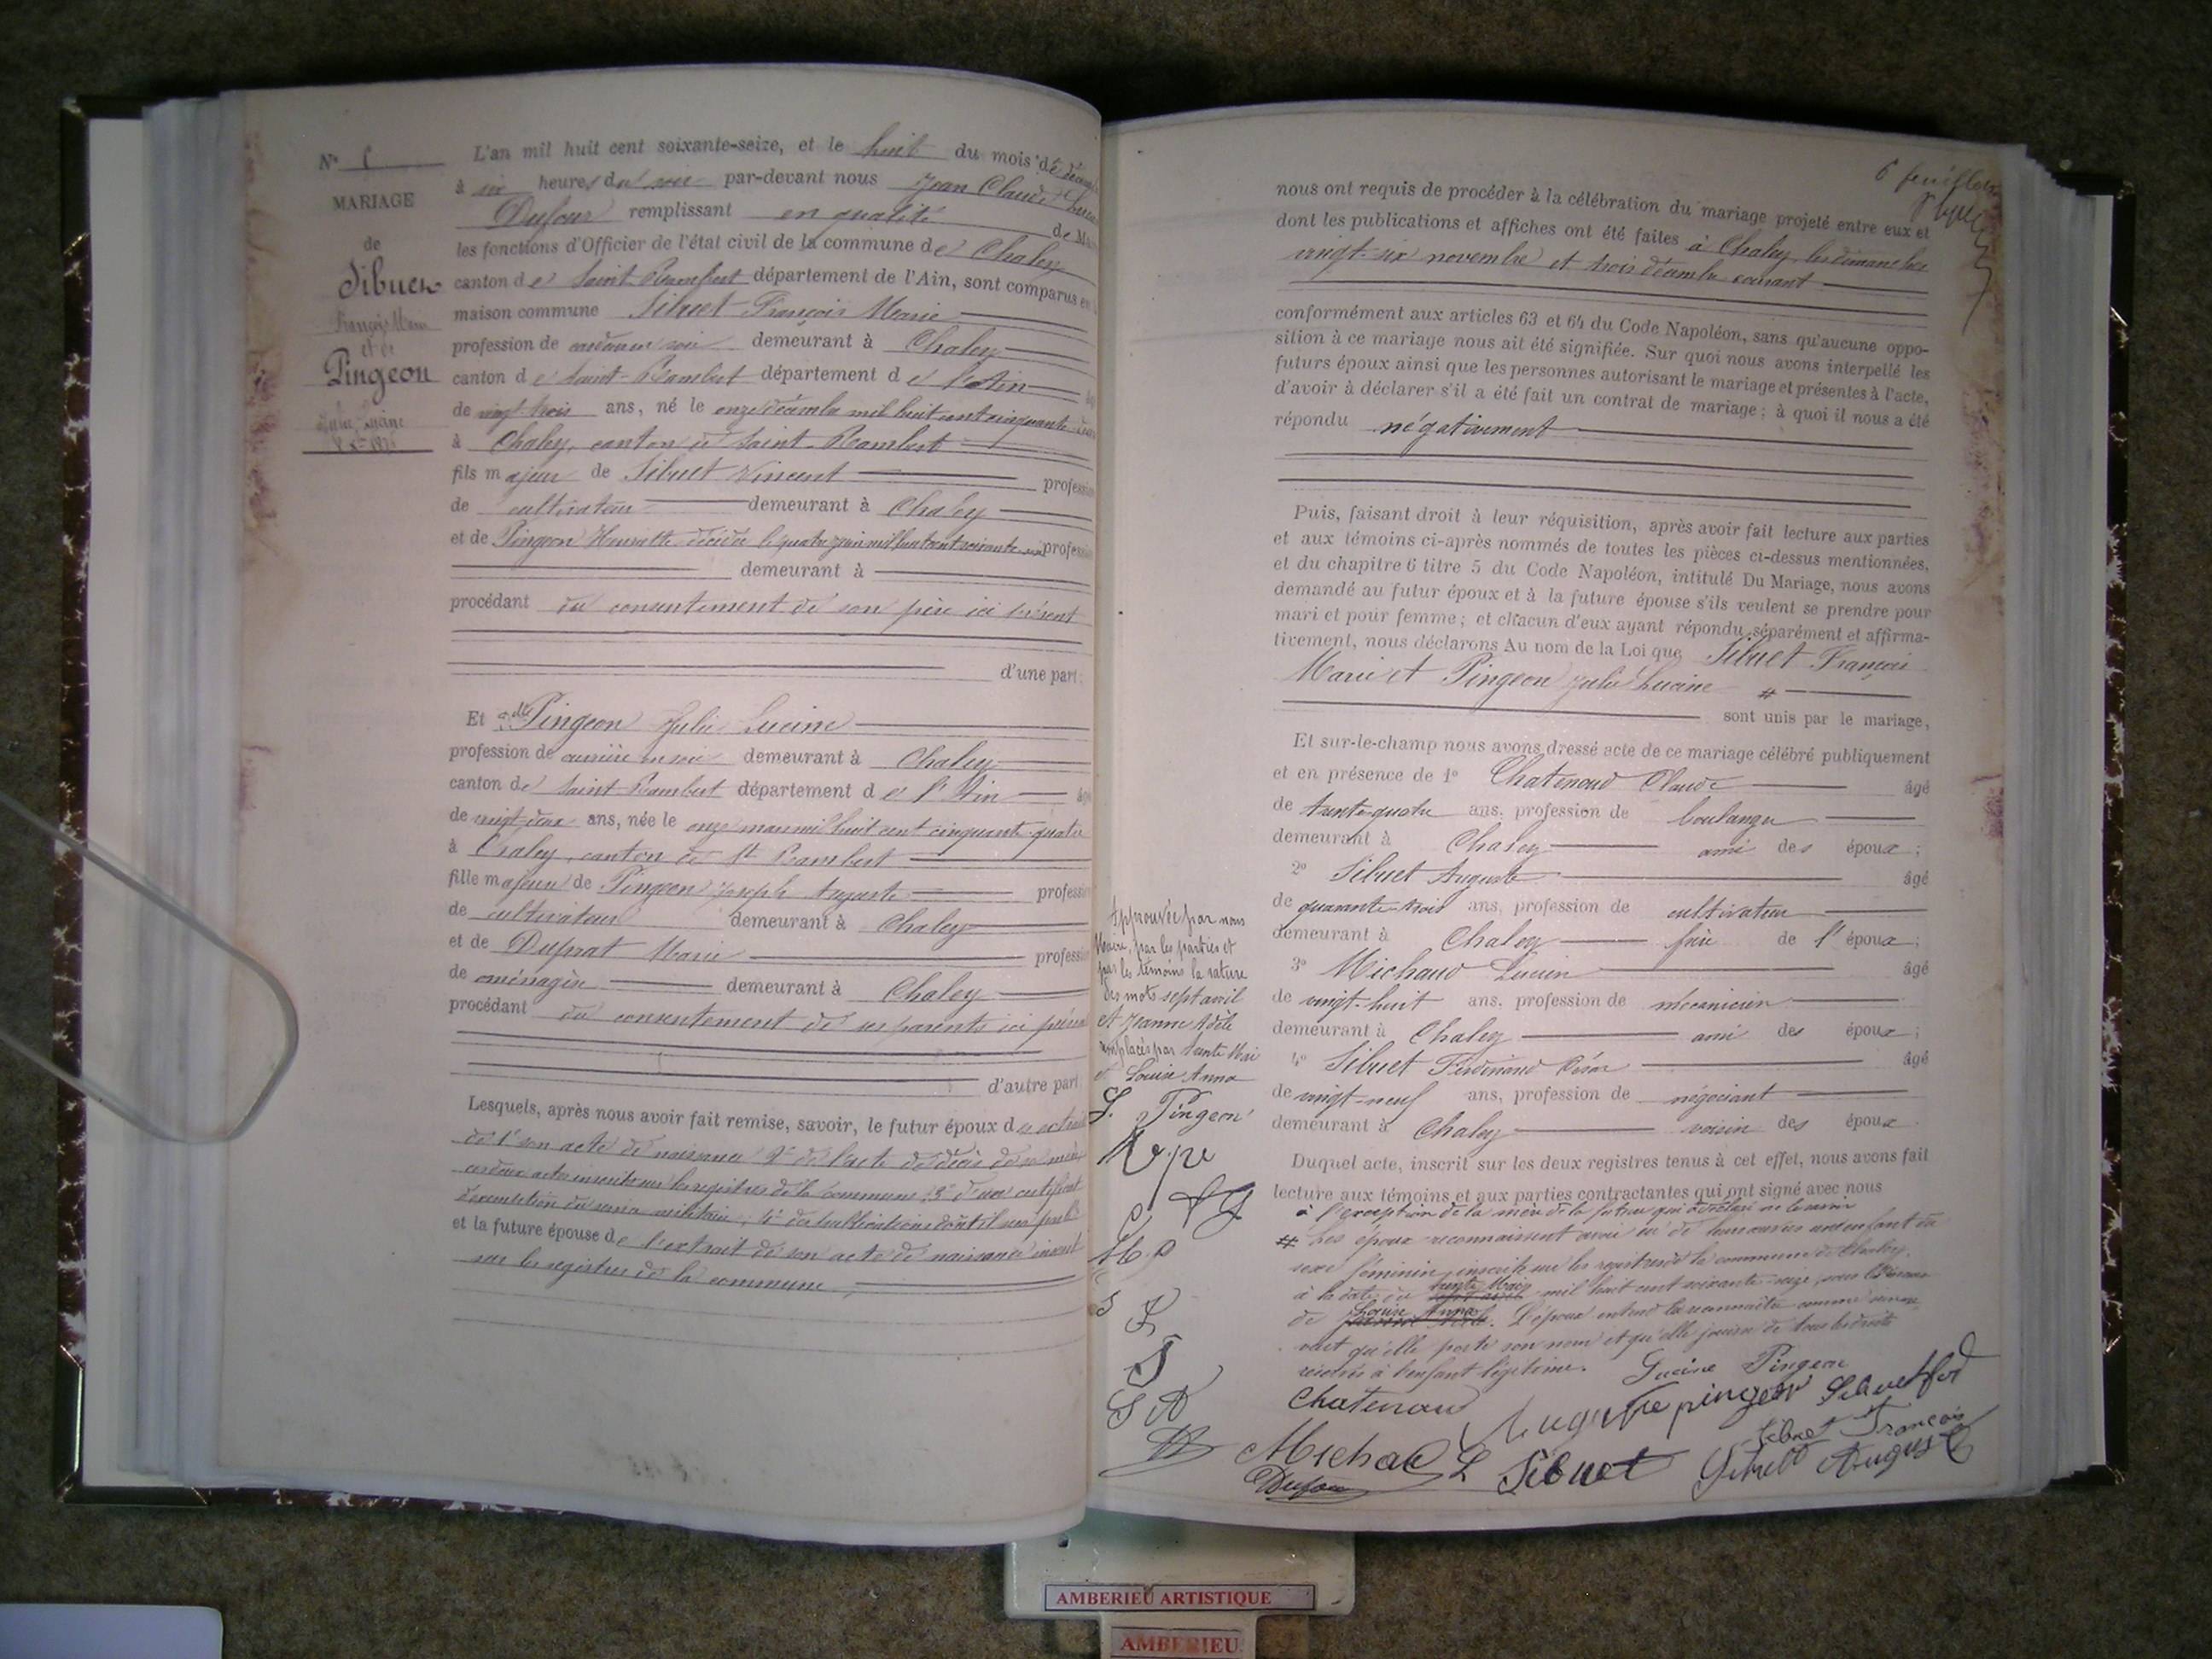 N°
MARIAGE
de
Sibuet
François Marie
et de
Pingeon
Julie Lucine
L'an mil huit cent soixante-seize, et le huit du mois de
à six heures du soir par-devant nous Jean Claude
Dufour remplissant en qualité de
les fonctions d'Officier de l'état civil de la commune de Chaley
canton de Saint-Rambert département de l'Ain, sont comparus en
maison commune Sibuet François Marie
profession de demeurant à Chaley
canton de Saint-Rambert département de l'Ain
de vingt trois ans, né le onze décembre mil huit cent cinquante
à Chaley, canton de Saint-Rambert
fils majeur de Sibuet Vincent profession
de cultivateur demeurant à Chaley
et de Pingeon décédée le quatre juin mil huit cent soixante profession
demeurant à
procédant du consentement de son père ici présent
d'une part
Et dlle Pingeon Julie Lucine
profession de ouvrière en soie demeurant à Chaley
canton de Saint-Rambert département de l'Ain âgée
de vingt-deux ans, née le onze mars mil huit cent cinquante quatre
à Chaley, canton de St Rambert
fille majeure de Pingeon Joseph Auguste profession
de cultivateur demeurant à Chaley
et de Duprat Marie profession
de ménagère demeurant à Chaley
procédant du consentement de ses parents ici présents
d'autre part
Lesquels, après nous avoir fait remise, savoir, le futur époux de extrait
de 1° son acte de naissance 2° de l'acte de décès de sa mère
ces deux actes inscrits sur les registres de la commune, 3° d'un certificat
et la future épouse de l'extrait de son acte de naissance inscrit
sur les registres de la commune
6 feuillets
nous ont requis de procéder à la célébration du mariage projeté entre eux et
dont les publications et affiches ont été faites à Chaley, les dimanches
vingt-six novembre et trois décembre courant
conformément aux articles 63 et 64 du Code Napoléon, sans qu'aucune oppo-
sition à ce mariage nous ait été signifiée. Sur quoi nous avons interpellé les
futurs époux ainsi que les personnes autorisant le mariage et présentes à l'acte,
d'avoir à déclarer s'il a été fait un contrat de mariage; à quoi il nous a été
répondu négativement
Puis, faisant droit à leur réquisition, après avoir fait lecture aux parties
et aux témoins ci-après nommés de toutes les pièces ci-dessus mentionnées,
et du chapitre 6 titre 5 du Code Napoléon, intitulé Du Mariage, nous avons
demandé au futur époux et à la future épouse s'ils veulent se prendre pour
mari et pour femme; et chacun d'eux ayant répondu séparément et affirma-
tivement, nous déclarons Au nom de la Loi que Sibuet François
Marie et Pingeon Julie Lucine #
sont unis par le mariage,
Et sur-le-champ nous avons dressé acte de ce mariage célébré publiquement
et en présence de 1° Chatenoud Claude âgé
de trente-quatre ans, profession de boulanger
demeurant à Chaley ami des époux;
2° Sibuet Auguste âgé
de quarante-trois ans, profession de cultivateur
demeurant à Chaley frère de l'époux;
3° Michaud Lucien âgé
de vingt-huit ans, profession de mécanicien
demeurant à Chaley ami des époux;
4° Sibuet Ferdinand César âgé
de vingt-neuf ans, profession de négociant
demeurant à Chaley voisin des époux
Duquel acte, inscrit sur les deux registres tenus à cet effet, nous avons fait
lecture aux témoins et aux parties contractantes qui ont signé avec nous
à l'exception de la mère de la future qui a déclaré ne le savoir
# Les époux reconnaissent avoir eu de leurs œuvres un enfant du
sexe féminin, inscrite sur les registres de la commune de Chaley,
à la date du trente Mai mil huit cent soixante-seize, sous les prénoms
de Louise Anna. L'époux entend la reconnaître comme
veut qu'elle porte son nom et qu'elle jouisse de tous les droits
réservés à l'enfant légitime.
Lucine Pingeon
Chatenoud
Auguste pingeon
Sibuet fod
Sibuet François
Michaud L
Sibuet
Sibuet Auguste
Dufour
Approuvée par nous
Maire, par les parties et
par les témoins la rature
des mots sept avril
et Jeanne Adèle
remplacés par trente Mai
et Louise Anna
L. Pingeon
AMBERIEU ARTISTIQUE
AMBERIEU